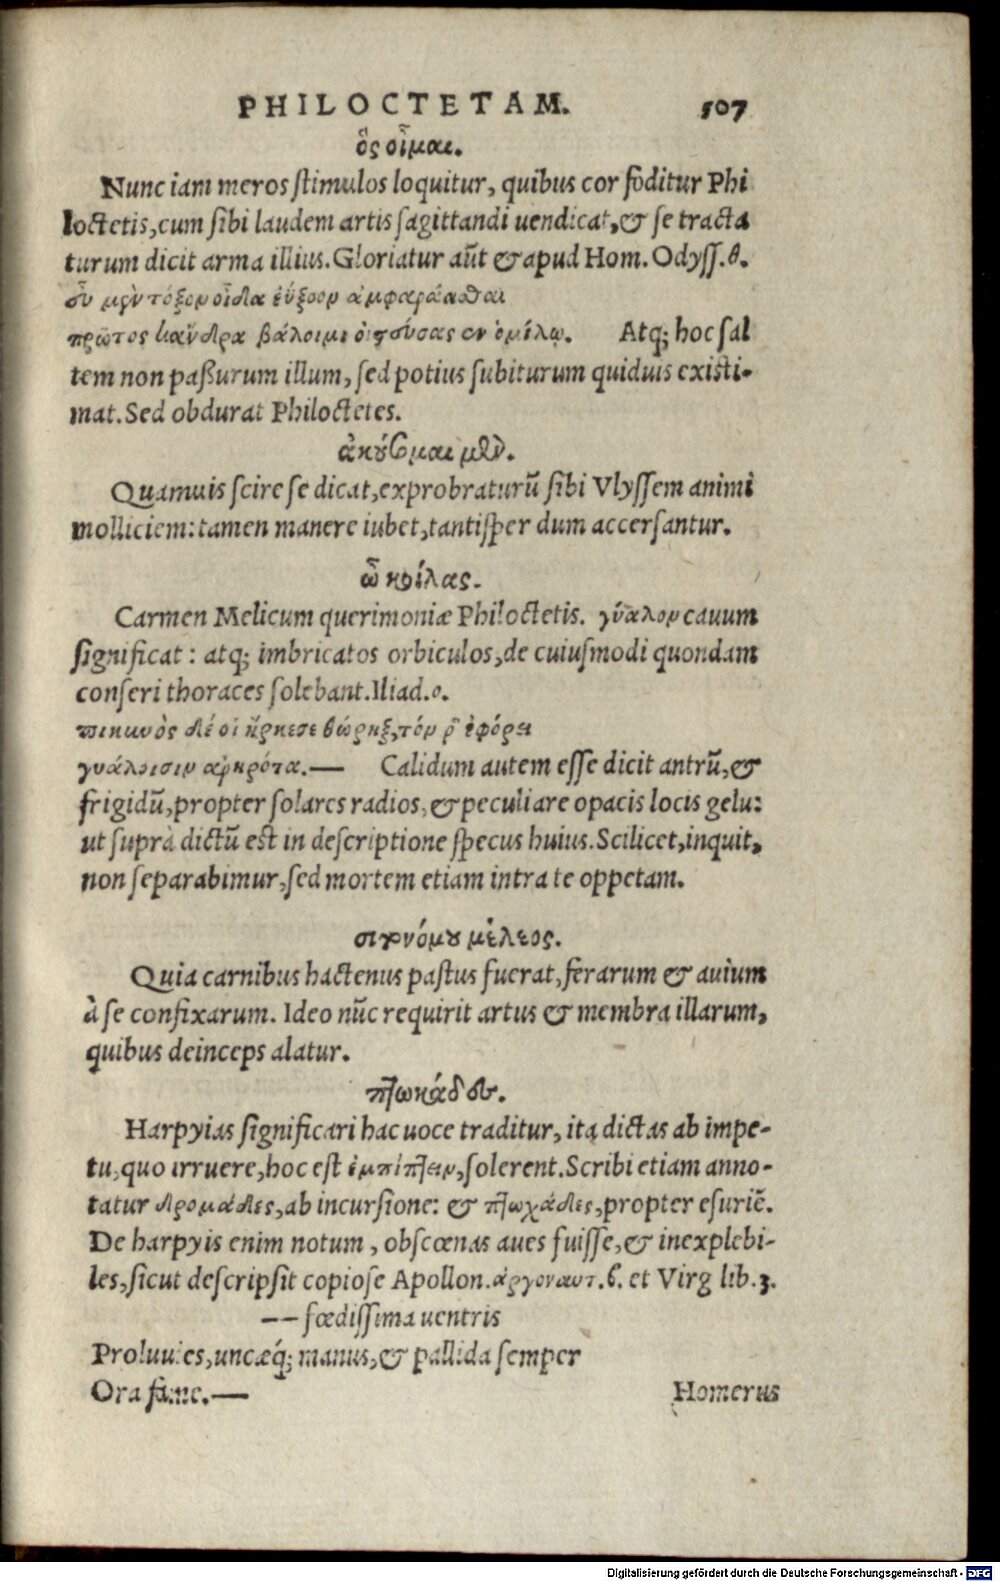 PHILOCTETAM. 507
ὃς οἶμαι.
Nunc iam meros stimulos loquitur, quibus cor foditur Phi
loctetis, cum sibi laudem artis sagittandi uendicat, & se tracta
turum dicit arma illius. Gloriatur aūt & apud Hom. Odyss. θ.
εὖ μὲν τόξον οἶδα ἐύξοον ἀμφαφάασθαι
πρῶτος κἄνδρα βάλοιμι ὀϊστεύσας ἐν ὁμίλῳ. Atq; hoc sal
tem non paßurum illum, sed potius subiturum quiduis existi-
mat. Sed obdurat Philoctetes.
ἀκούσομαι μὲν.
Quamuis scire se dicat, exprobraturū sibi Vlyssem animi
molliciem: tamen manere iubet, tantisper dum accersantur.
ὦ κοίλας.
Carmen Melicum querimoniæ Philoctetis. γύαλον cauum
significat: atq; imbricatos orbiculos, de cuiusmodi quondam
conseri thoraces solebant. Iliad. ο.
πυκινὸς δέ οἱ ἤρκεσε θώρηξ, τόν ῥ' ἐφόρει
γυάλοισιν ἀρηρότα.— Calidum autem esse dicit antrū, &
frigidū, propter solares radios, & peculiare opacis locis gelu:
ut suprà dictū est in descriptione specus huius. Scilicet, inquit,
non separabimur, sed mortem etiam intra te oppetam.
σιτονόμου μέλεος.
Quia carnibus hactenus pastus fuerat, ferarum & auium
à se confixarum. Ideo nūc requirit artus & membra illarum,
quibus deinceps alatur.
πτωκάδες.
Harpyias significari hac uoce traditur, ita dictas ab impe-
tu, quo irruere, hoc est ἐμπίπτειν, solerent. Scribi etiam anno-
tatur δρομάδες, ab incursione: & πτωχάδες, propter esuriē.
De harpyis enim notum, obscœnas aues fuisse, & inexplebi-
les, sicut descripsit copiose Apollon. ἀργοναυτ. β. et Virg lib. 3.
—— fœdissima uentris
Proluuies, uncæq́; manus, & pallida semper
Ora fame.— Homerus
Digitalisierung gefördert durch die Deutsche Forschungsgemeinschaft - DFG